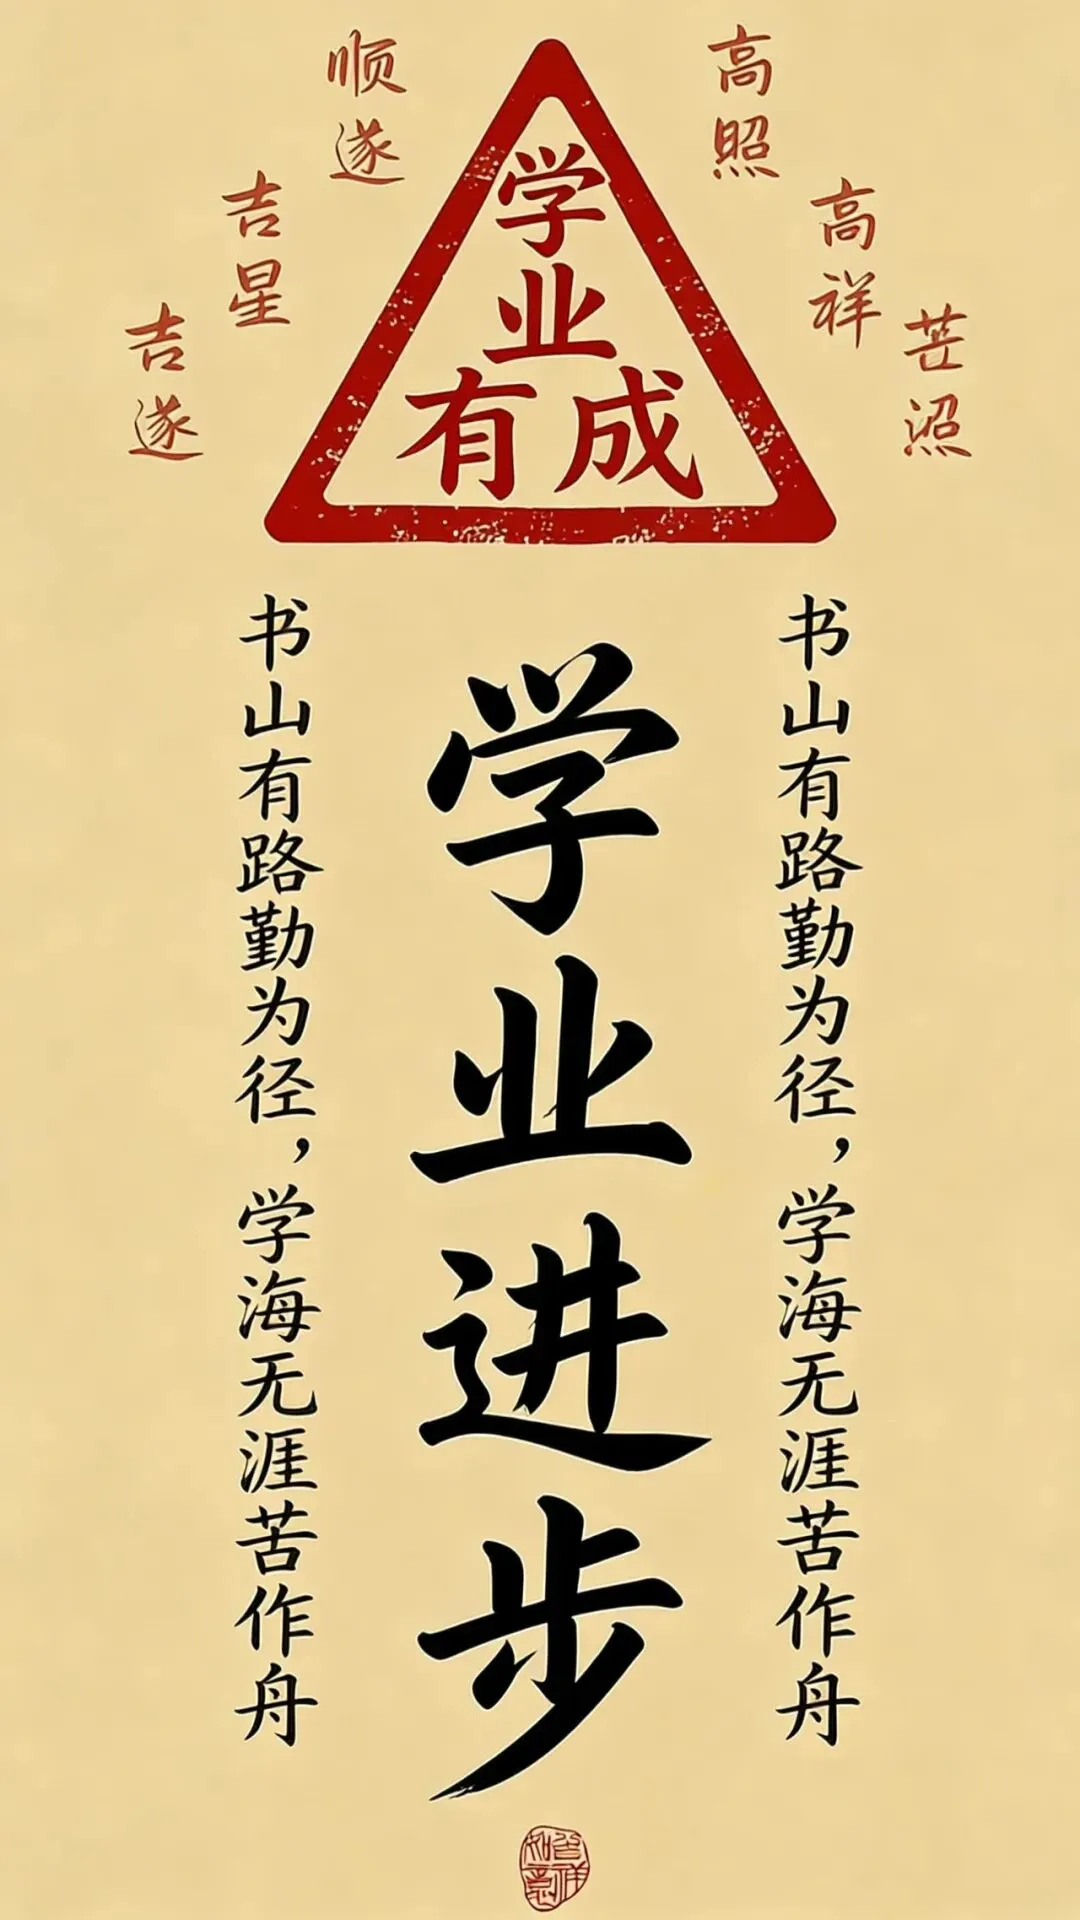 顺遂
高照
吉星
高祥
吉遂
芒照
学
业
有成
书山有路勤为径，学海无涯苦作舟
学业进步
书山有路勤为径，学海无涯苦作舟